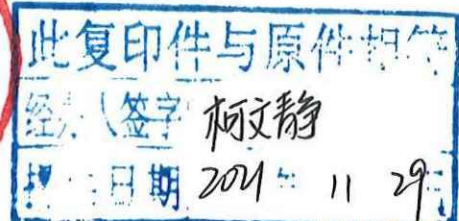 此复印件与原件相符
经办人签字 柯文静
日期 2021年 11 29